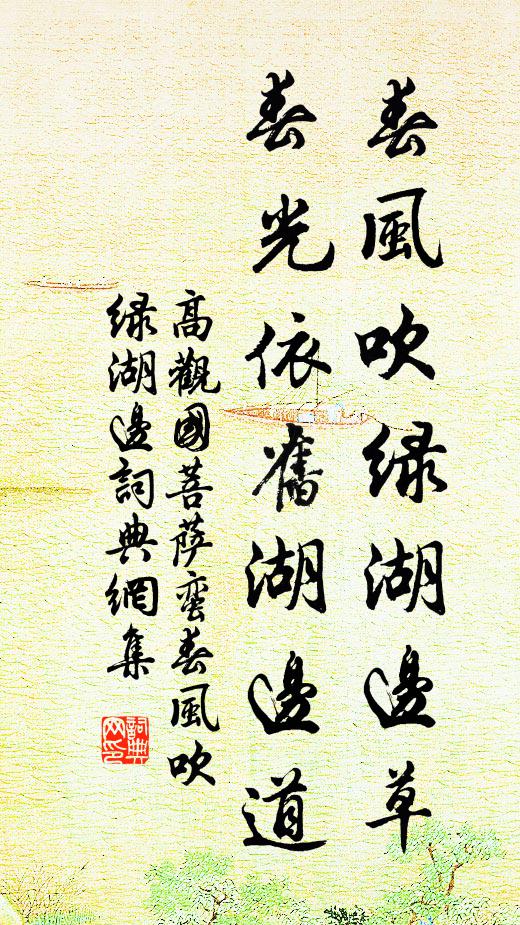 春風吹綠湖邊草
春光依舊湖邊道
高觀國菩薩蠻春風吹
綠湖邊詞典網集
詞典網印